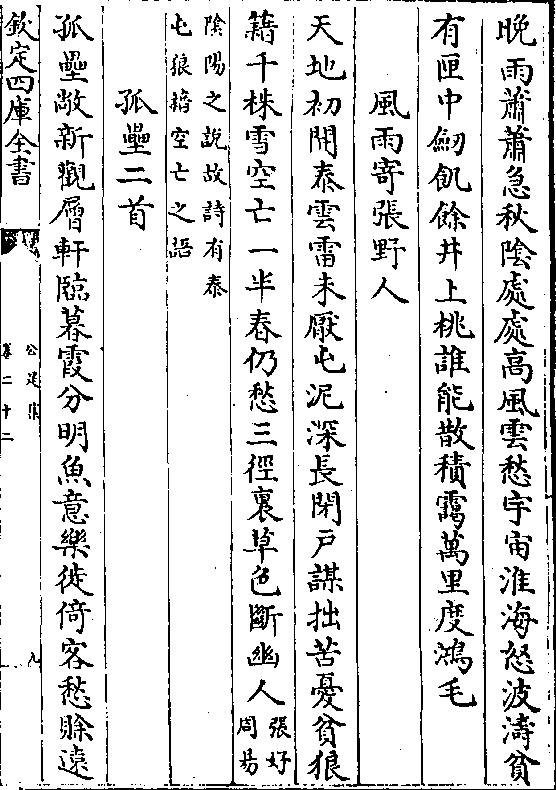 晚雨蕭蕭急秋陰處處高風雲愁宇宙淮海怒波濤貧
有匣中劒飢餘井上桃誰能散積靄萬里度鴻毛
風雨寄張野人
天地初開泰雲雷未厭屯泥深長閉戸謀拙苦憂貧狼
藉千株雪空亡一半春仍愁三徑裏草色斷幽人
張好
周易
陰陽之說故詩有泰
屯狼藉空亡之語
孤壘二首
孤壘敞新觀層軒臨暮霞分明魚意樂徙倚客愁賒遠
欽定四庫全書
公是集
卷二十二
九